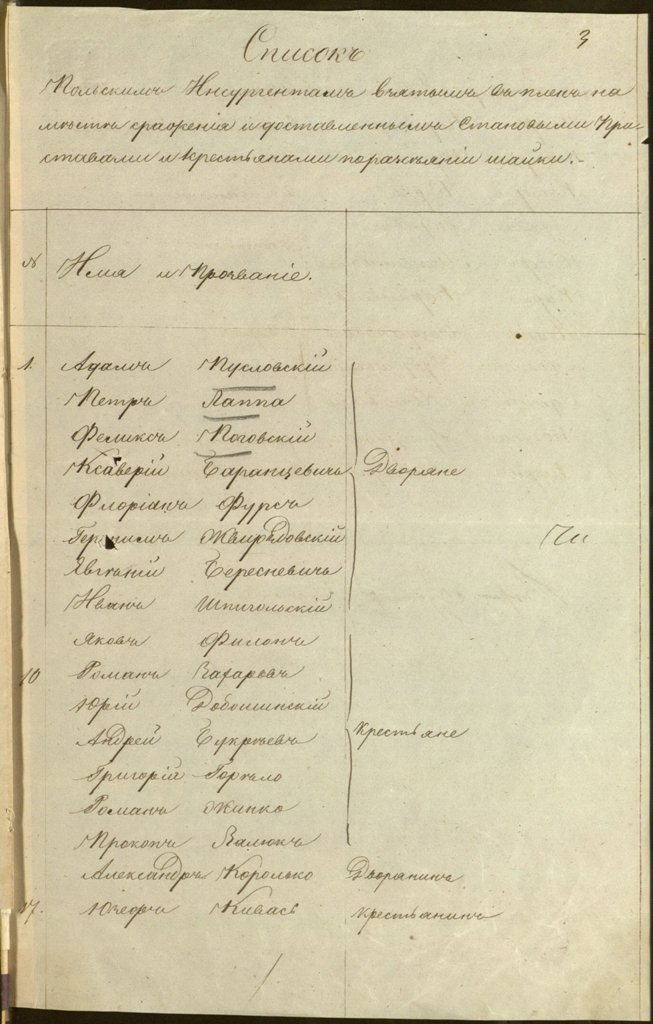 3
Списокъ
Польскимъ Инсургентамъ взятымъ въ пленъ на
мѣстѣ сраженія и доставленнымъ Становыми При-
ставами и крестьянами по разбѣжаніи шайки.
№ Имя и Прозваніе.
1. Адамъ Пусловскій
Петръ Лаппа
Феликсъ Роговскій
Ксаверій Баранцевичъ Дворяне
Флоріанъ Фурсъ
Жвирждовскій
Бересневичъ
Иванъ Шпигольскій
Яковъ Филонъ
10 Романъ Захаровъ
Юрій Добошинскій
Андрей Букрѣевъ Крестьяне
Григорій Горгало
Романъ Жинко
Прокопъ Валюкъ
Александръ Королько Дворянинъ
17. Юзефъ Кивась Крестьянинъ